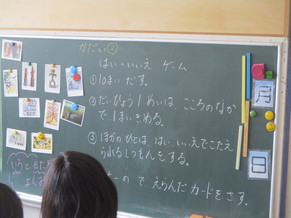 かだい②
はい・いいえ ゲーム
①1まい だす。
②だいひょう 1めいは こころのなか
で 1まいきめる。
③ほかのひとは はい いいえでこたえ
られるしつもんをする。
の で えらんだ カードをさす。
月
日